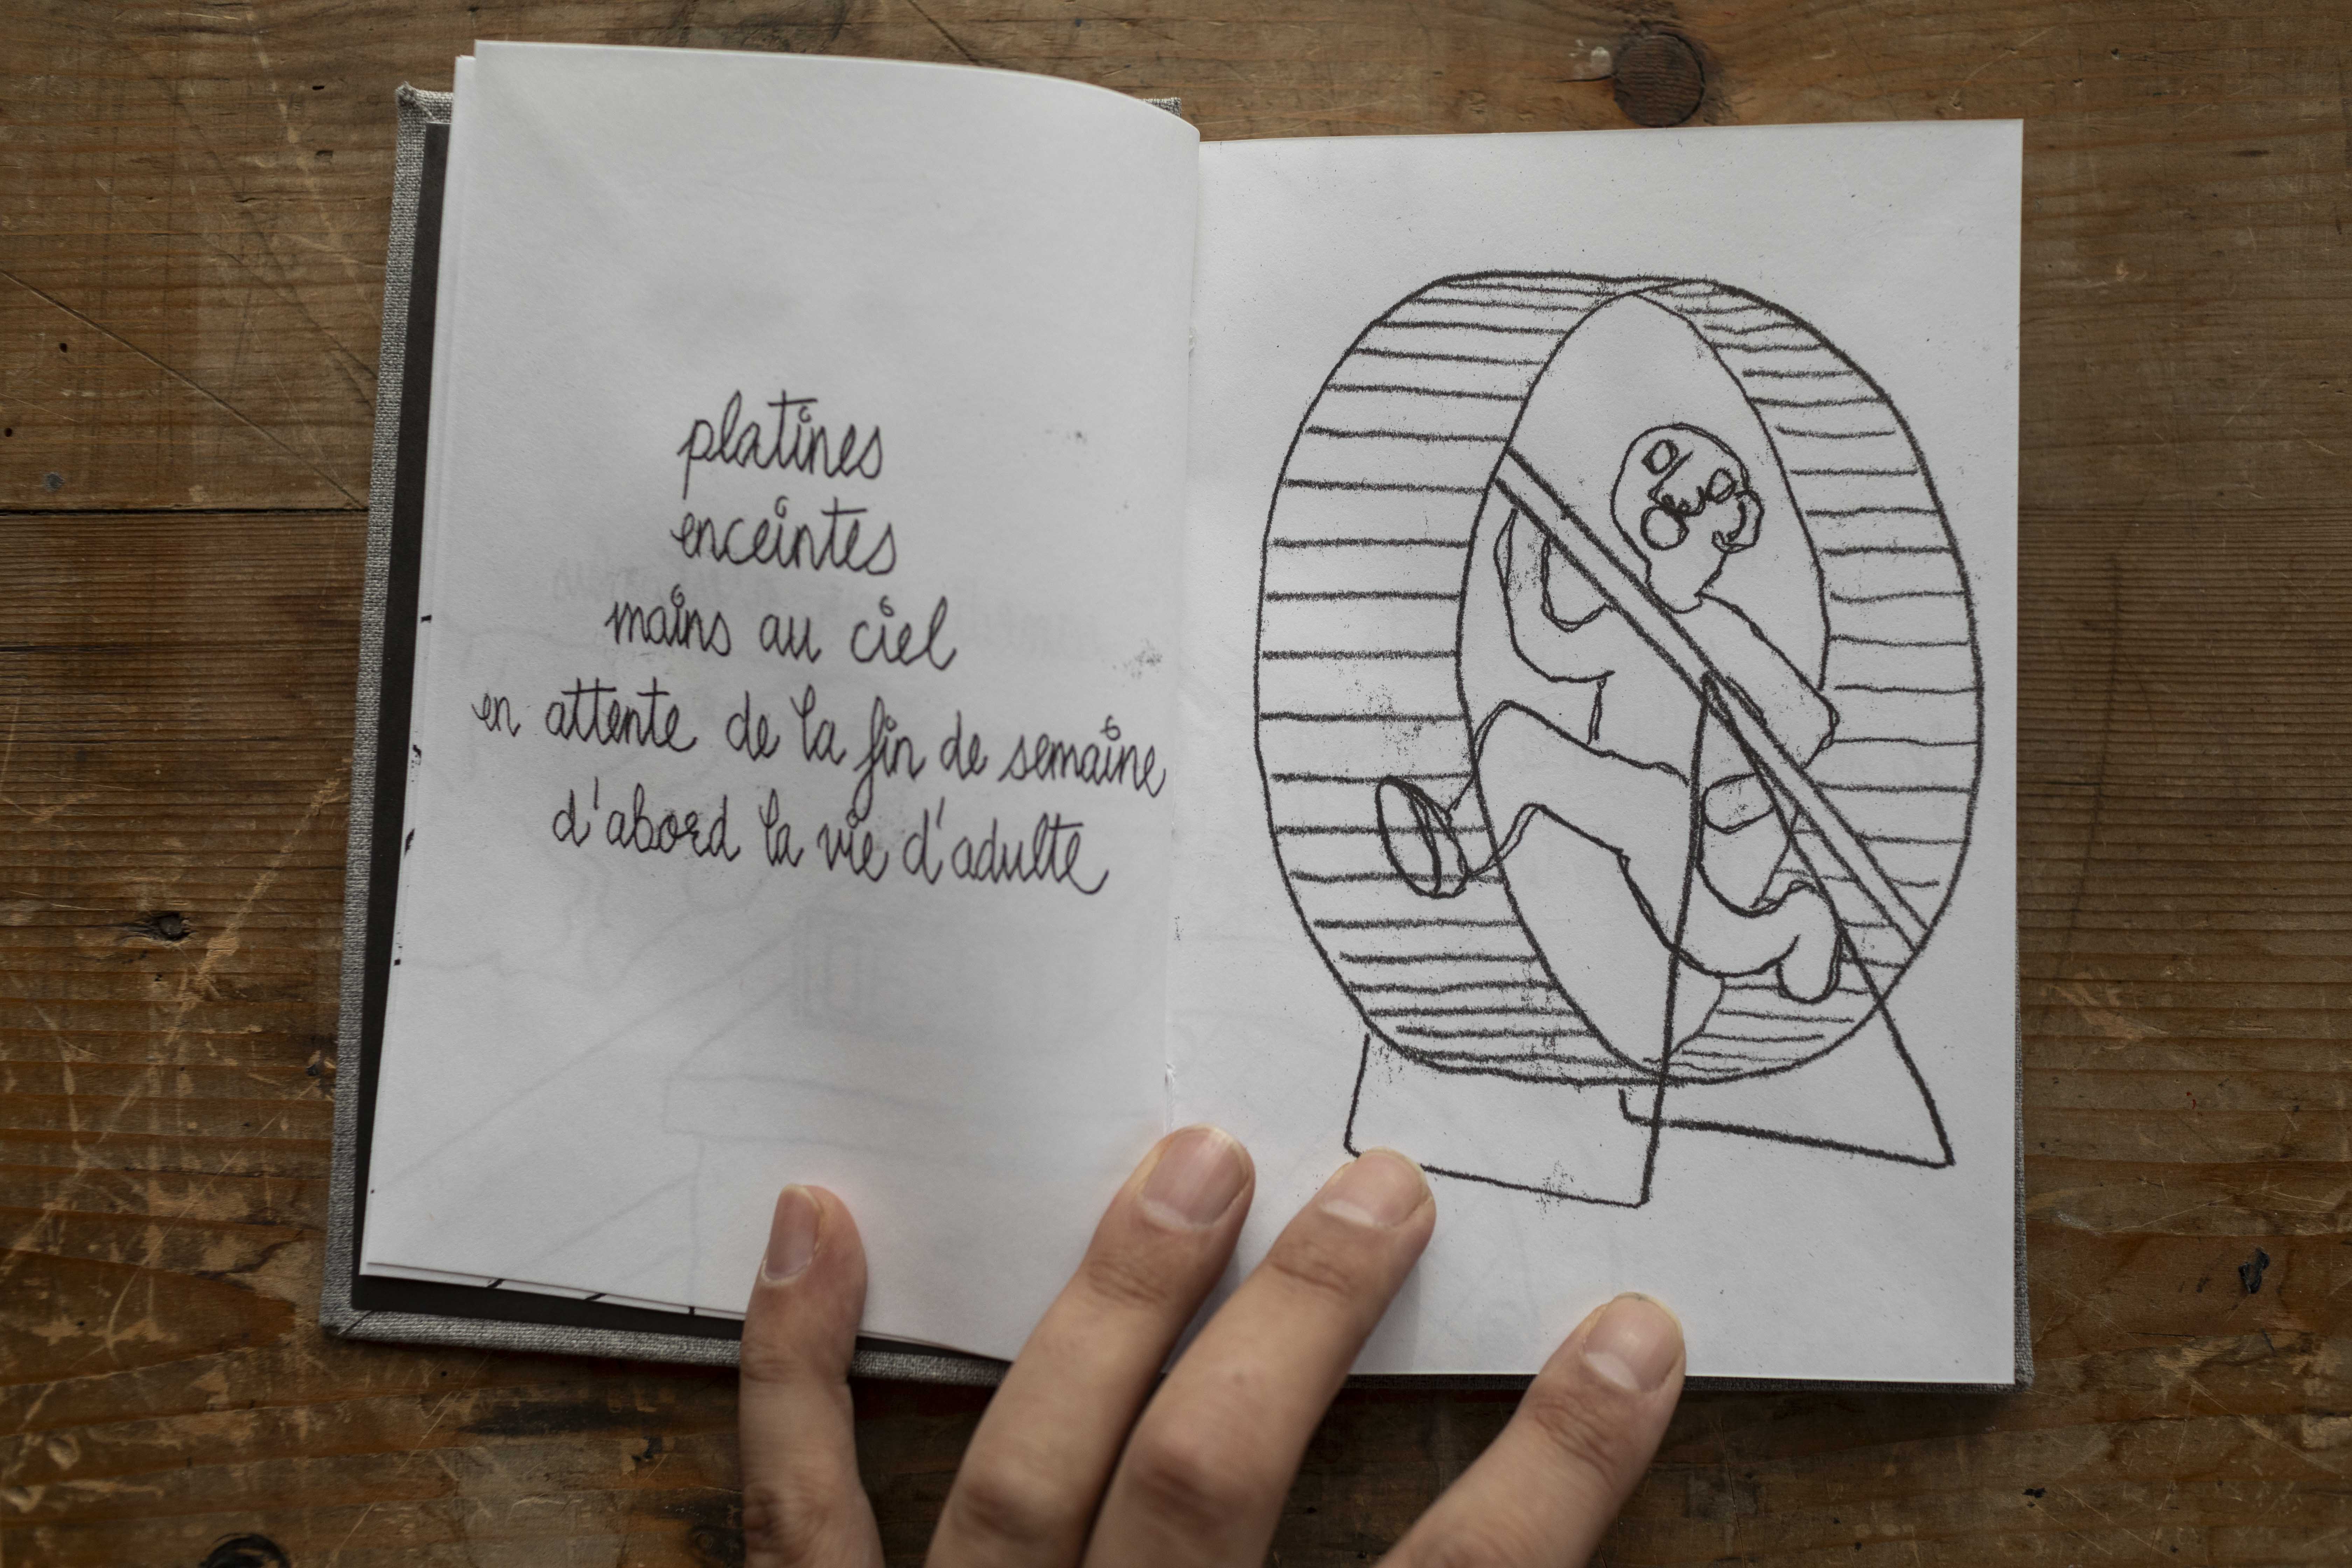 platines
enceintes
mains au ciel
en attente de la fin de semaine
d'abord la vie d'adulte